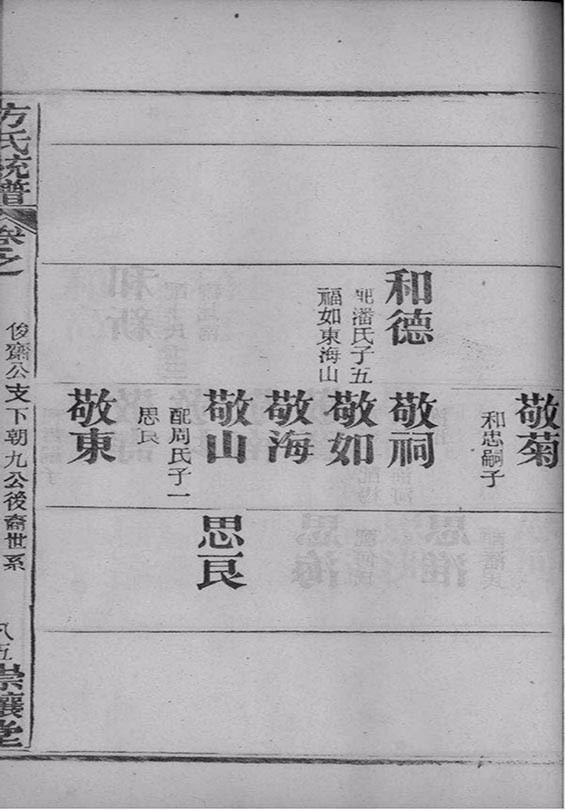 敬菊
和忠嗣子
和德
配潘氏子五
福如東海山
敬祠
敬如
敬海
敬山
配周氏子一
思艮
思艮
敬東
方氏統譜
卷之
俊齋公支下朝九公後裔世系
八五
崇讓堂